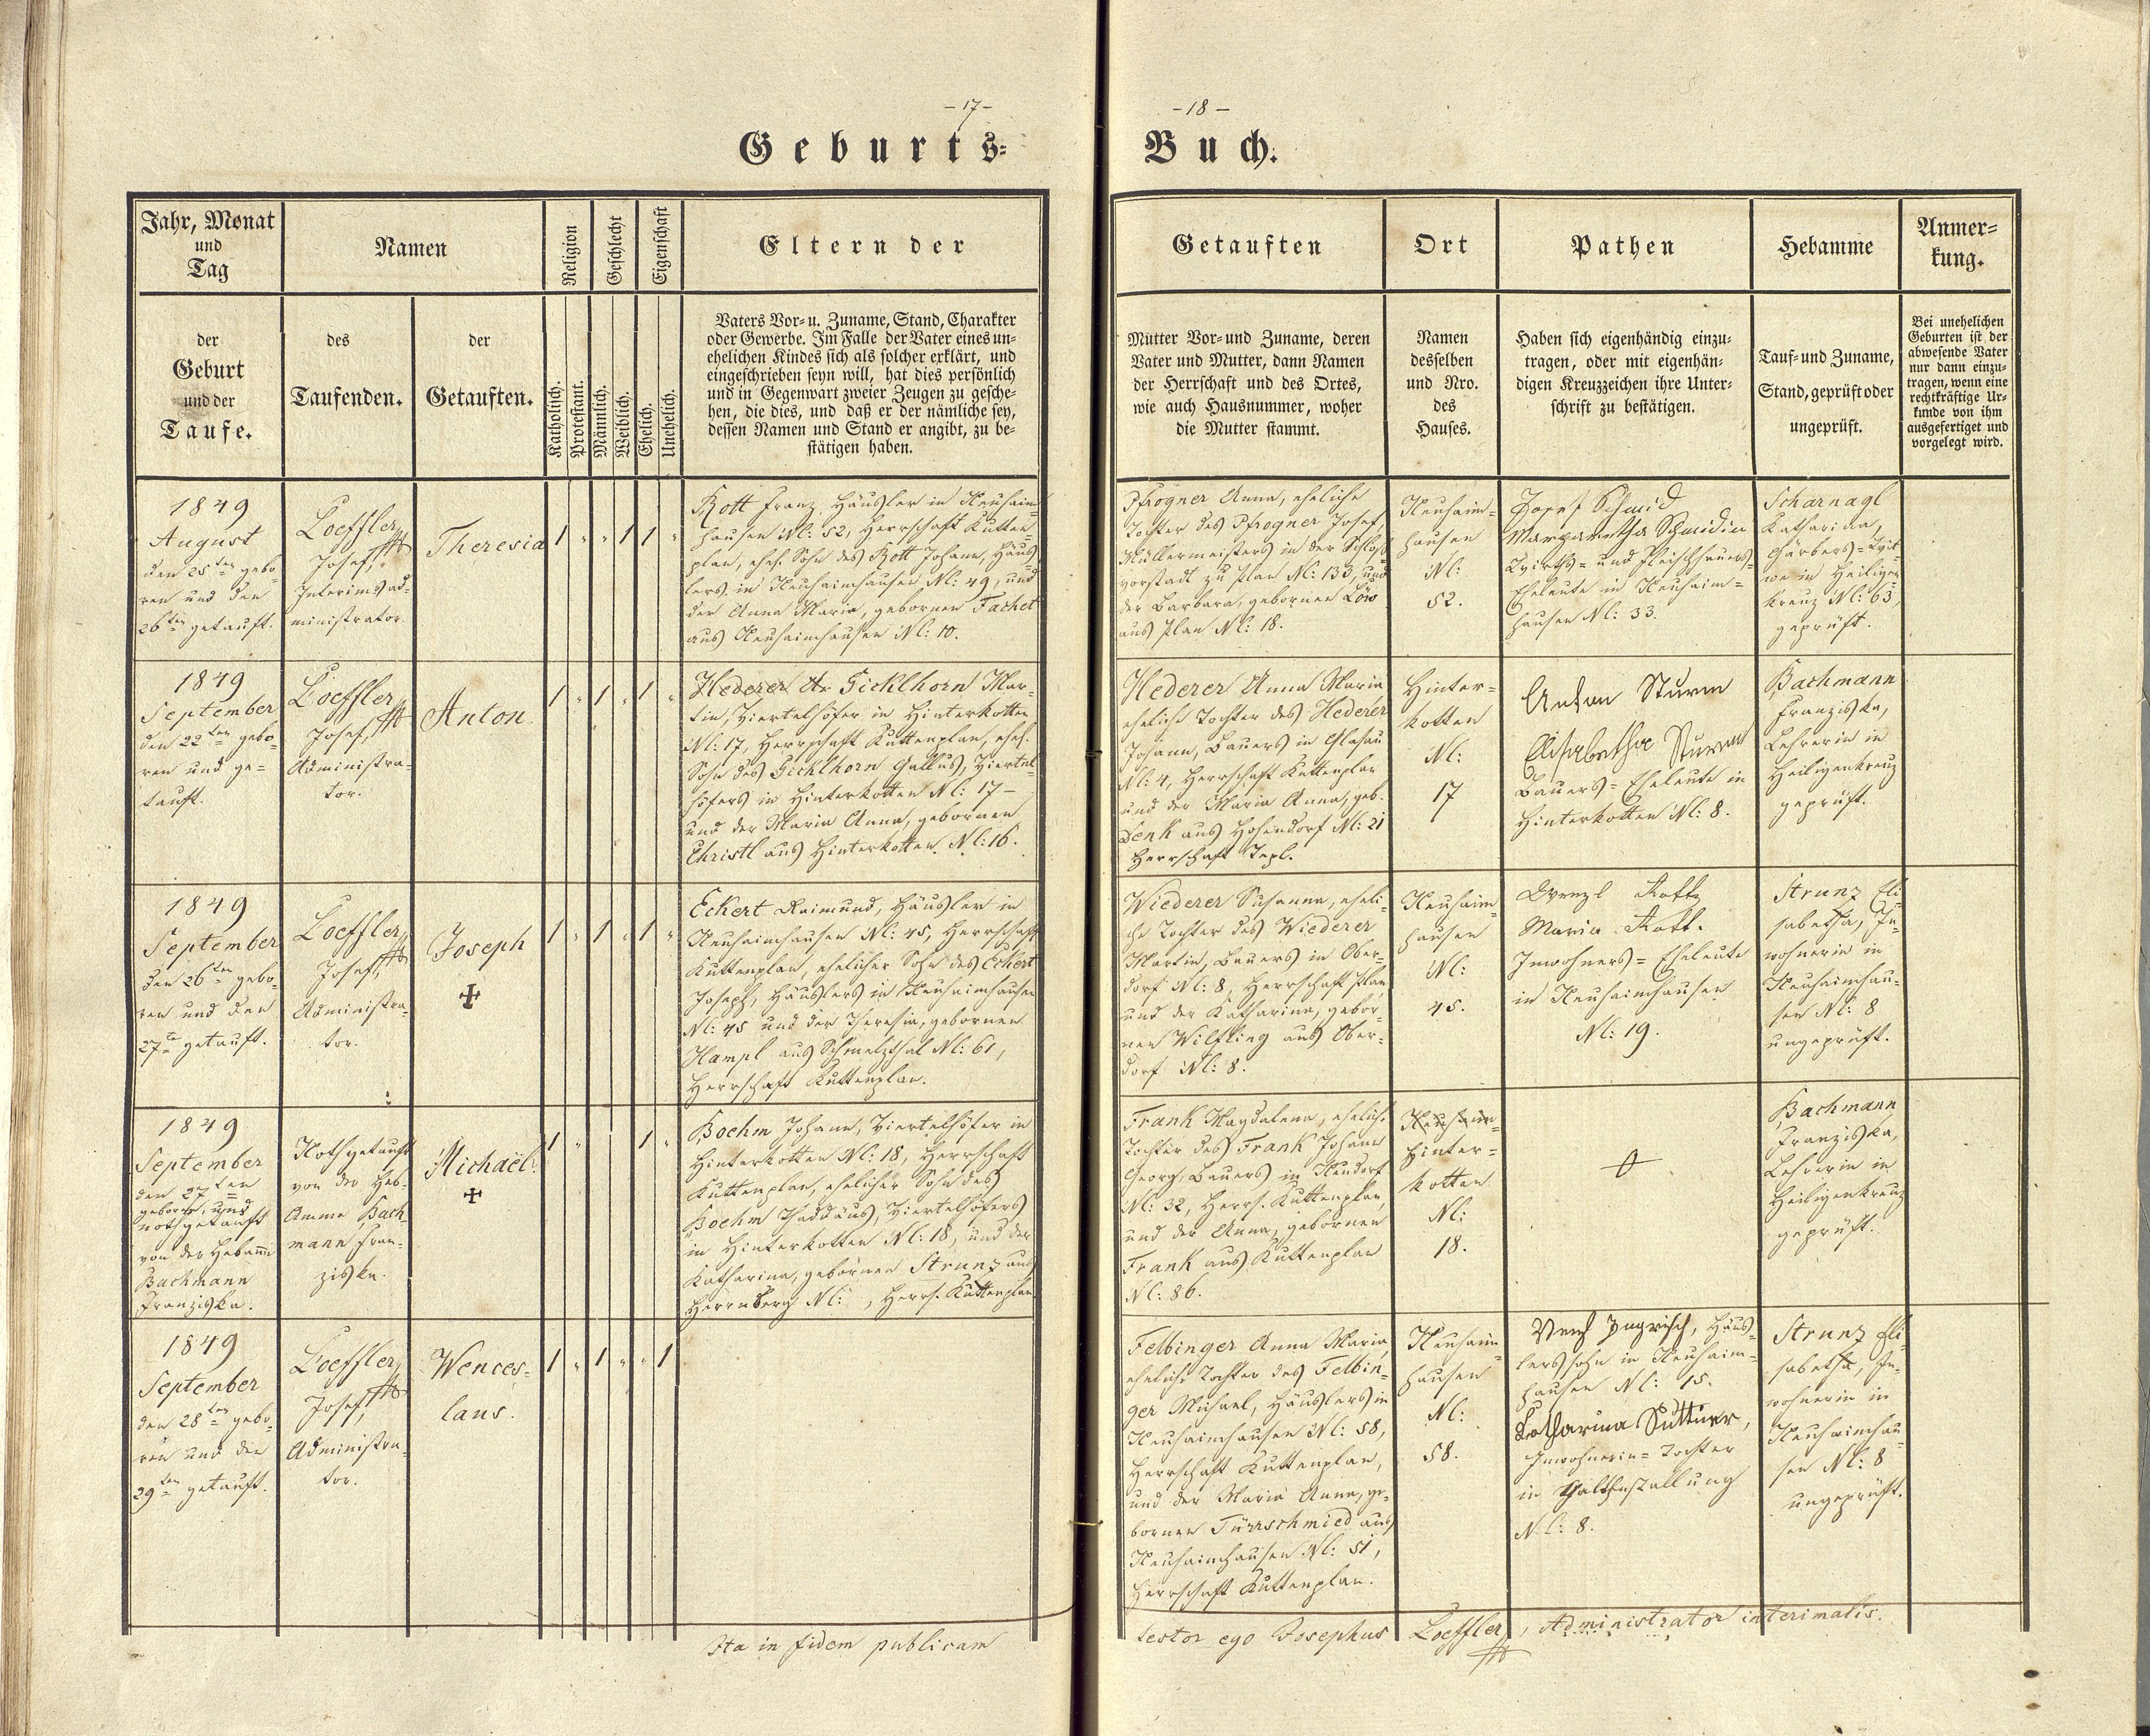 -17-
-18-
Geburts=
Buch.
Jahr, Monat
und
Tag
Namen
Religion
Geschlecht
Eigenschaft
Eltern der
Getauften
Ort
Pathen
Hebamme
Anmer=
kung.
der
Geburt
und der
Taufe.
des
Taufenden.
der
Getauften.
Katholisch.
Protestant.
Männlich.
Weiblich.
Ehelich.
Unehelich.
Vaters Vor- u. Zuname, Stand, Charakter
oder Gewerbe. Im Falle der Vater eines un=
ehelichen Kindes sich als solcher erklärt, und
eingeschrieben seyn will, hat dies persönlich
und in Gegenwart zweier Zeugen zu gesche=
hen, die dies, und daß er der nämliche sey,
dessen Namen und Stand er angibt, zu be=
stätigen haben.
Mutter Vor- und Zuname, deren
Vater und Mutter, dann Namen
der Herrschaft und des Ortes,
wie auch Hausnummer, woher
die Mutter stammt.
Namen
desselben
und Nro.
des
Hauses.
Haben sich eigenhändig einzu=
tragen, oder mit eigenhän=
digen Kreuzzeichen ihre Unter=
schrift zu bestätigen.
Tauf- und Zuname,
Stand, geprüft oder
ungeprüft.
Bei unehelichen
Geburten ist der
abwesende Vater
nur dann einzu=
tragen, wenn eine
rechtkräftige Ur=
kunde von ihm
ausgefertiget und
vorgelegt wird.
1849
August
den 25ten gebo=
ren und den
26ten getauft.
Loeffler
Josef,
Interimsad=
ministrator.
Theresia
1 " " 1 1 "
Rott Franz, Häusler in Neuhaim=
hausen Nl: 52, Herrschaft Kutten=
plan, ehel. Sohn des Rott Johann, Häus=
lers in Neuhaimhausen Nl: 49, und
der Anna Maria, gebornen Fachet
aus Neuhaimhausen Nl: 10.
Pfrogner Anna, eheliche
Tochter des Pfrogner Josef,
Müllermeisters in der Schloß=
vorstadt zu Plan Nl: 133, und
der Barbara, gebornen Löw
aus Plan Nl: 18.
Neuhaim=
hausen
Nl:
52.
Josef Schmid
Margaretha Schmidin
Wirths= und Fleischhauers=
Eheleute in Neuhaim=
hausen Nl: 33.
Scharnagl
Katharina,
Gärbers=Wit=
we in Heiligen=
kreuz Nl: 63,
geprüft.
1849
September
den 22ten gebo=
ren und ge=
tauft.
Loeffler
Josef,
Administra=
tor.
Anton.
1 " 1 " 1 "
Hederer An Gicklhorn Mar=
tin, Viertelhöfer in Hinterkotten
Nl: 17, Herrschaft Kuttenplan, ehel.
Sohn des Gicklhorn Gallus, Viertel=
höfers in Hinterkotten Nl: 17 –
und der Maria Anna, gebornen
Christl aus Hinterkotten Nl: 16.
Hederer Anna Maria
eheliche Tochter des Hederer
Johann, Bauers in Glasau
Nl: 4, Herrschaft Kuttenplan
und der Maria Anna, geb.
Denk aus Hohendorf Nl: 21
Herrschaft Tepl.
Hinter=
kotten
Nl:
17
Anton Sturm
Elisabetha Sturm
Bauers=Eheleute in
Hinterkotten Nl: 8.
Bachmann
Franziska,
Lehrerin in
Heiligenkreuz
geprüft.
1849
September
den 26ten gebo=
ren und den
27ten getauft.
Loeffler
Josef,
Administra=
tor.
Joseph
1 " 1 " 1 "
Eckert Raimund, Häusler in
Neuhaimhausen Nl: 45, Herrschaft
Kuttenplan, ehelicher Sohn des Eckert
Joseph, Häuslers in Neuhaimhausen
Nl: 45 und der Theresia, gebornen
Hampl aus Schmelzthal Nl: 61,
Herrschaft Kuttenplan.
Wiederer Susanna, eheli=
che Tochter des Wiederer
Martin, Bauers in Ober=
dorf Nl: 8, Herrschaft Plan,
und der Katharina, gebor=
nen Wilfling aus Ober=
dorf Nl: 8.
Neuhaim=
hausen
Nl:
45.
Wenzl Rott
Maria Rott.
Inwohners=Eheleute
in Neuhaimhausen
Nl: 19.
Strunz Eli=
sabetha, In=
wohnerin in
Neuhaimhau=
sen Nl: 8
ungeprüft.
1849
September
den 27ten
geboren, und
nothgetauft
von der Hebamme
Bachmann
Franziska.
Nothgetauft
von der Heb=
Amme Bach=
mann Fran=
ziska.
Michaël.
1 " 1 "
Boehm Johann, Viertelhöfer in
Hinterkotten Nl: 18, Herrschaft
Kuttenplan, ehelicher Sohn des
Boehm Thaddäus, Viertelhöfers
in Hinterkotten Nl: 18, und der
Katharina, gebornen Strunz aus
Herrnberg Nl: , Herrs. Kuttenplan.
Frank Magdalena, eheliche
Tochter des Frank Johann
Georg, Bauers in Neudorf
Nl: 32, Herrs. Kuttenplan,
und der Anna, gebornen
Frank aus Kuttenplan
Nl: 86.
Neuhaim=
Hinter=
kotten
Nl:
18.
Bachmann
Franziska,
Lehrerin in
Heiligenkreuz
geprüft.
1849
September
den 28ten gebo=
ren und den
29ten getauft.
Loeffler
Josef,
Administra=
tor.
Wences=
laus.
1 " 1 " " 1
Felbinger Anna Maria,
eheliche Tochter des Felbin=
ger Michael, Häuslers in
Neuhaimhausen Nl: 58,
Herrschaft Kuttenplan,
und der Maria Anna, ge=
bornen Türrschmied aus
Neuhaimhausen Nl: 51,
Herrschaft Kuttenplan.
Neuhaim=
hausen
Nl:
58.
Häus=
lerssohn in Neuhaim=
hausen Nl: 15.
Katharina Suttner,
Inwohnerin=Tochter
in Galtenstallung
Nl: 8.
Strunz Eli=
sabetha, In=
wohnerin in
Neuhaimhau=
sen Nl: 8
ungeprüft.
Ita in fidem publicam
testor ego Josephus Loeffler, Administrator interimalis.